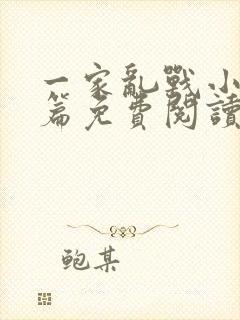 一家亂戰小
篇免費閱讀
鲍某